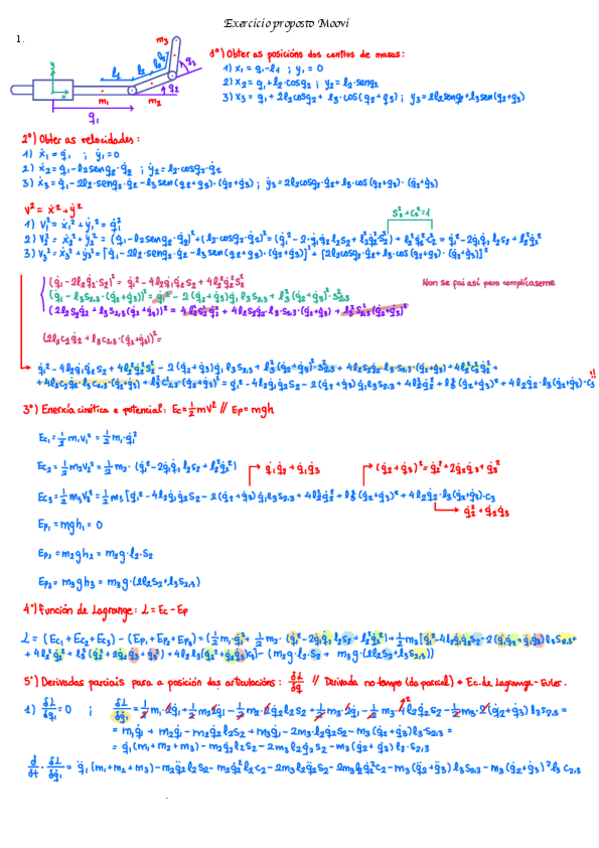 Exercicio proposto Moovi
1.
m₃
l₁
l₂
l₂
l₃
q₃
q₂
y
x
m₁
m₂
q₁
1º) Obter as posicións dos centros de masas:
1) x₁ = q₁-l₁ ; y₁ = 0
2) x₂ = q₁+l₂·cosq₂ ; y₂ = l₂·senq₂
3) x₃ = q₁ + 2l₂cosq₂ + l₃·cos(q₂+q₃) ; y₃ = 2l₂senq₂+l₃sen(q₂+q₃)
2º) Obter as velocidades:
1) ẋ₁ = q̇₁ ; ẏ₁ = 0
2) ẋ₂ = q̇₁ - l₂senq₂·q̇₂ ; ẏ₂ = l₂·cosq₂·q̇₂
3) ẋ₃ = q̇₁ - 2l₂·senq₂·q̇₂ - l₃sen(q₂+q₃)·(q̇₂+q̇₃) ; ẏ₃ = 2l₂cosq₂·q̇₂ + l₃·cos(q₂+q₃)·(q̇₂+q̇₃)
v² = ẋ² + ẏ²
S₂²+C₂²=1
1) V₁² = ẋ₁² + ẏ₁² = q̇₁²
2) V₂² = ẋ₂² + ẏ₂² = (q̇₁ - l₂senq₂·q̇₂)² + (l₂·cosq₂·q̇₂)² = (q̇₁² - 2·q̇₁q̇₂l₂s₂ + l₂²q̇₂²s₂²) + l₂²q̇₂²c₂² = q̇₁² - 2q̇₁q̇₂ l₂s₂ + l₂²q̇₂²
3) V₃² = ẋ₃² + ẏ₃² = [q̇₁ - 2l₂senq₂·q̇₂ - l₃sen(q₂+q₃)·(q̇₂+q̇₃)]² + [2l₂cosq₂·q̇₂ + l₃·cos(q₂+q₃)·(q̇₂+q̇₃)]²
(q̇₁ - 2l₂q̇₂·s₂)² = q̇₁² - 4l₂q̇₁q̇₂s₂ + 4l₂²q̇₂²s₂²
Non se fai así para complicarme
(q̇₁ - l₃s₂,₃·(q̇₂+q̇₃))² = q̇₁² - 2(q̇₂+q̇₃)q̇₁ l₃s₂,₃ + l₃²(q̇₂+q̇₃)²·s₂,₃²
(2l₂s₂q̇₂ + l₃s₂,₃(q̇₂+q̇₃))² = 4l₂²s₂²q̇₂² + 4l₂s₂q̇₂·l₃·s₂,₃·(q̇₂+q̇₃) + l₃²s₂,₃²(q̇₂+q̇₃)²
(2l₂c₂q̇₂ + l₃c₂,₃·(q̇₂+q̇₃))² =
q̇₁² - 4l₂q̇₁q̇₂s₂ + 4l₂²q̇₂²s₂² - 2(q̇₂+q̇₃)q̇₁ l₃s₂,₃ + l₃²(q̇₂+q̇₃)²·s₂,₃² + 4l₂s₂q̇₂·l₃·s₂,₃·(q̇₂+q̇₃) + 4l₂²c₂²q̇₂² +
+ 4l₂c₂q̇₂l₃c₂,₃·(q̇₂+q̇₃) + l₃²c₂,₃²(q̇₂+q̇₃)² = q̇₁² - 4l₂q̇₁q̇₂s₂ - 2(q̇₂+q̇₃)q̇₁l₃s₂,₃ + 4l₂²q̇₂² + l₃²(q̇₂+q̇₃)² + 4l₂q̇₂·l₃(q̇₂+q̇₃)·c₃ !!
3º) Enerxía cinética e potencial: Ec = ½mv² // Ep = mgh
Ec₁ = ½m₁v₁² = ½m₁·q̇₁²
Ec₂ = ½m₂v₂² = ½m₂·(q̇₁² - 2q̇₁q̇₂ l₂s₂ + l₂²q̇₂²)
q̇₁q̇₂ + q̇₁q̇₃
(q̇₂+q̇₃)² = q̇₂² + 2q̇₂q̇₃ + q̇₃²
Ec₃ = ½m₃v₃² = ½m₃[q̇₁² - 4l₂q̇₁q̇₂s₂ - 2(q̇₂+q̇₃)q̇₁l₃s₂,₃ + 4l₂²q̇₂² + l₃²(q̇₂+q̇₃)² + 4l₂q̇₂·l₃(q̇₂+q̇₃)·c₃
q̇₂² + q̇₂q̇₃
Ep₁ = mgh₁ = 0
Ep₂ = m₂gh₂ = m₂g·l₂·s₂
Ep₃ = m₃gh₃ = m₃g·(2l₂s₂+l₃s₂,₃)
4º) Función de Lagrange: L = Ec - Ep
L = (Ec₁+Ec₂+Ec₃) - (Ep₁+Ep₂+Ep₃) = (½m₁·q̇₁² + ½m₂·(q̇₁² - 2q̇₁q̇₂ l₂s₂ + l₂²q̇₂²) + ½m₃[q̇₁² - 4l₂q̇₁q̇₂s₂ - 2(q̇₁q̇₂+q̇₁q̇₃)l₃s₂,₃+
+ 4l₂²q̇₂² + l₃²(q̇₂² + 2q̇₂q̇₃ + q̇₃²) + 4l₂l₃(q̇₂²+q̇₂q̇₃)c₃] - (m₂g·l₂·s₂ + m₃g·(2l₂s₂+l₃s₂,₃))
5º) Derivadas parciais para a posición das articulacións: δL/δq // Derivada no tempo (da parcial) → Ec. de Lagrange-Euler.
1) δL/δq₁ = 0 ; δL/δq̇₁ = ½m₁·2q̇₁ + ½m₂2q̇₁ - ½m₂·2q̇₂l₂s₂ + ½m₃·2q̇₁ - ½m₃·4l₂q̇₂s₂ - ½m₃·2(q̇₂+q̇₃)l₃s₂,₃ =
= m₁q̇₁ + m₂q̇₁ - m₂q̇₂l₂s₂ + m₃q̇₁ - 2m₃·l₂q̇₂s₂ - m₃(q̇₂+q̇₃)l₃s₂,₃ =
= q̇₁(m₁+m₂+m₃) - m₂q̇₂l₂s₂ - 2m₃l₂q̇₂s₂ - m₃(q̇₂+q̇₃)l₃·s₂,₃
d/dt · δL/δq̇₁ = q̈₁(m₁+m₂+m₃) - m₂q̈₂l₂s₂ - m₂q̇₂²l₂c₂ - 2m₃l₂q̈₂s₂ - 2m₃l₂q̇₂²c₂ - m₃(q̈₂+q̈₃)l₃s₂,₃ - m₃(q̇₂+q̇₃)²l₃c₂,₃